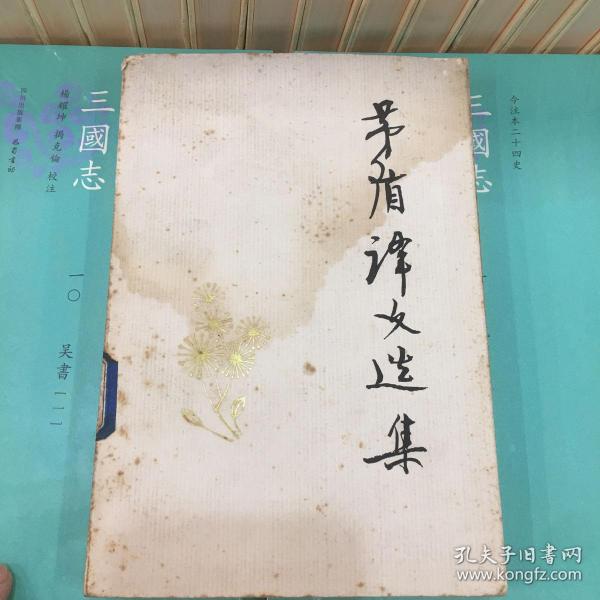 茅盾译文选集
三國志
楊耀坤 揭克倫 校注
四川出版集團 巴蜀書社
一〇
吴書【一】
三國志
今注本二十四史
孔夫子旧书网
www.kongfz.com